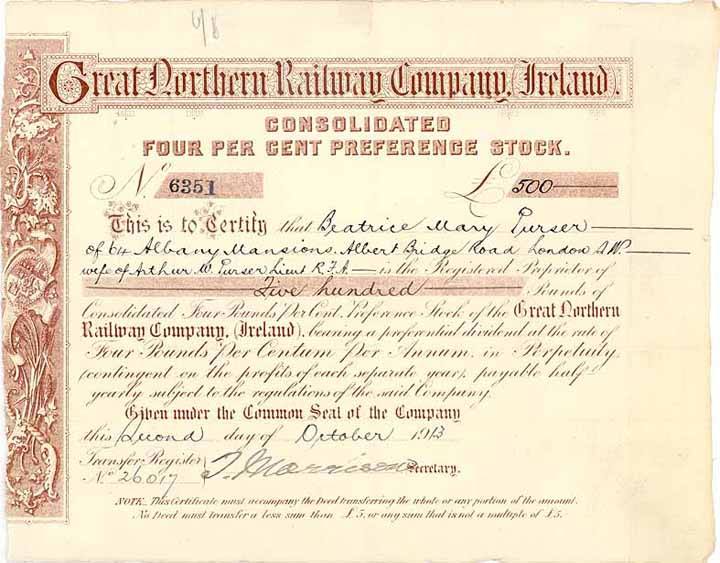 6/8
Great Northern Railway Company, (Ireland).
CONSOLIDATED
FOUR PER CENT PREFERENCE STOCK.
No. 6351 £ 500
This is to Certify that Beatrice Mary Purser
of 64 Albany Mansions, Albert Bridge Road London S.W.
wife of Arthur W. Purser Lieut R.F.A. is the Registered Proprietor of
Five hundred Pounds of
Consolidated Four Pounds per Cent. Preference Stock of the Great Northern
Railway Company, (Ireland), bearing a preferential dividend at the rate of
Four Pounds per Centum per Annum, in Perpetuity,
(contingent on the profits of each separate year), payable half-
yearly subject to the regulations of the said Company.
Given under the Common Seal of the Company
this Second day of October 1913
Transfer Register
No. 26017 T. Morrison Secretary.
NOTE. This Certificate must accompany the Deed transferring the whole or any portion of the amount.
No Deed must transfer a less sum than £5, or any sum that is not a multiple of £5.